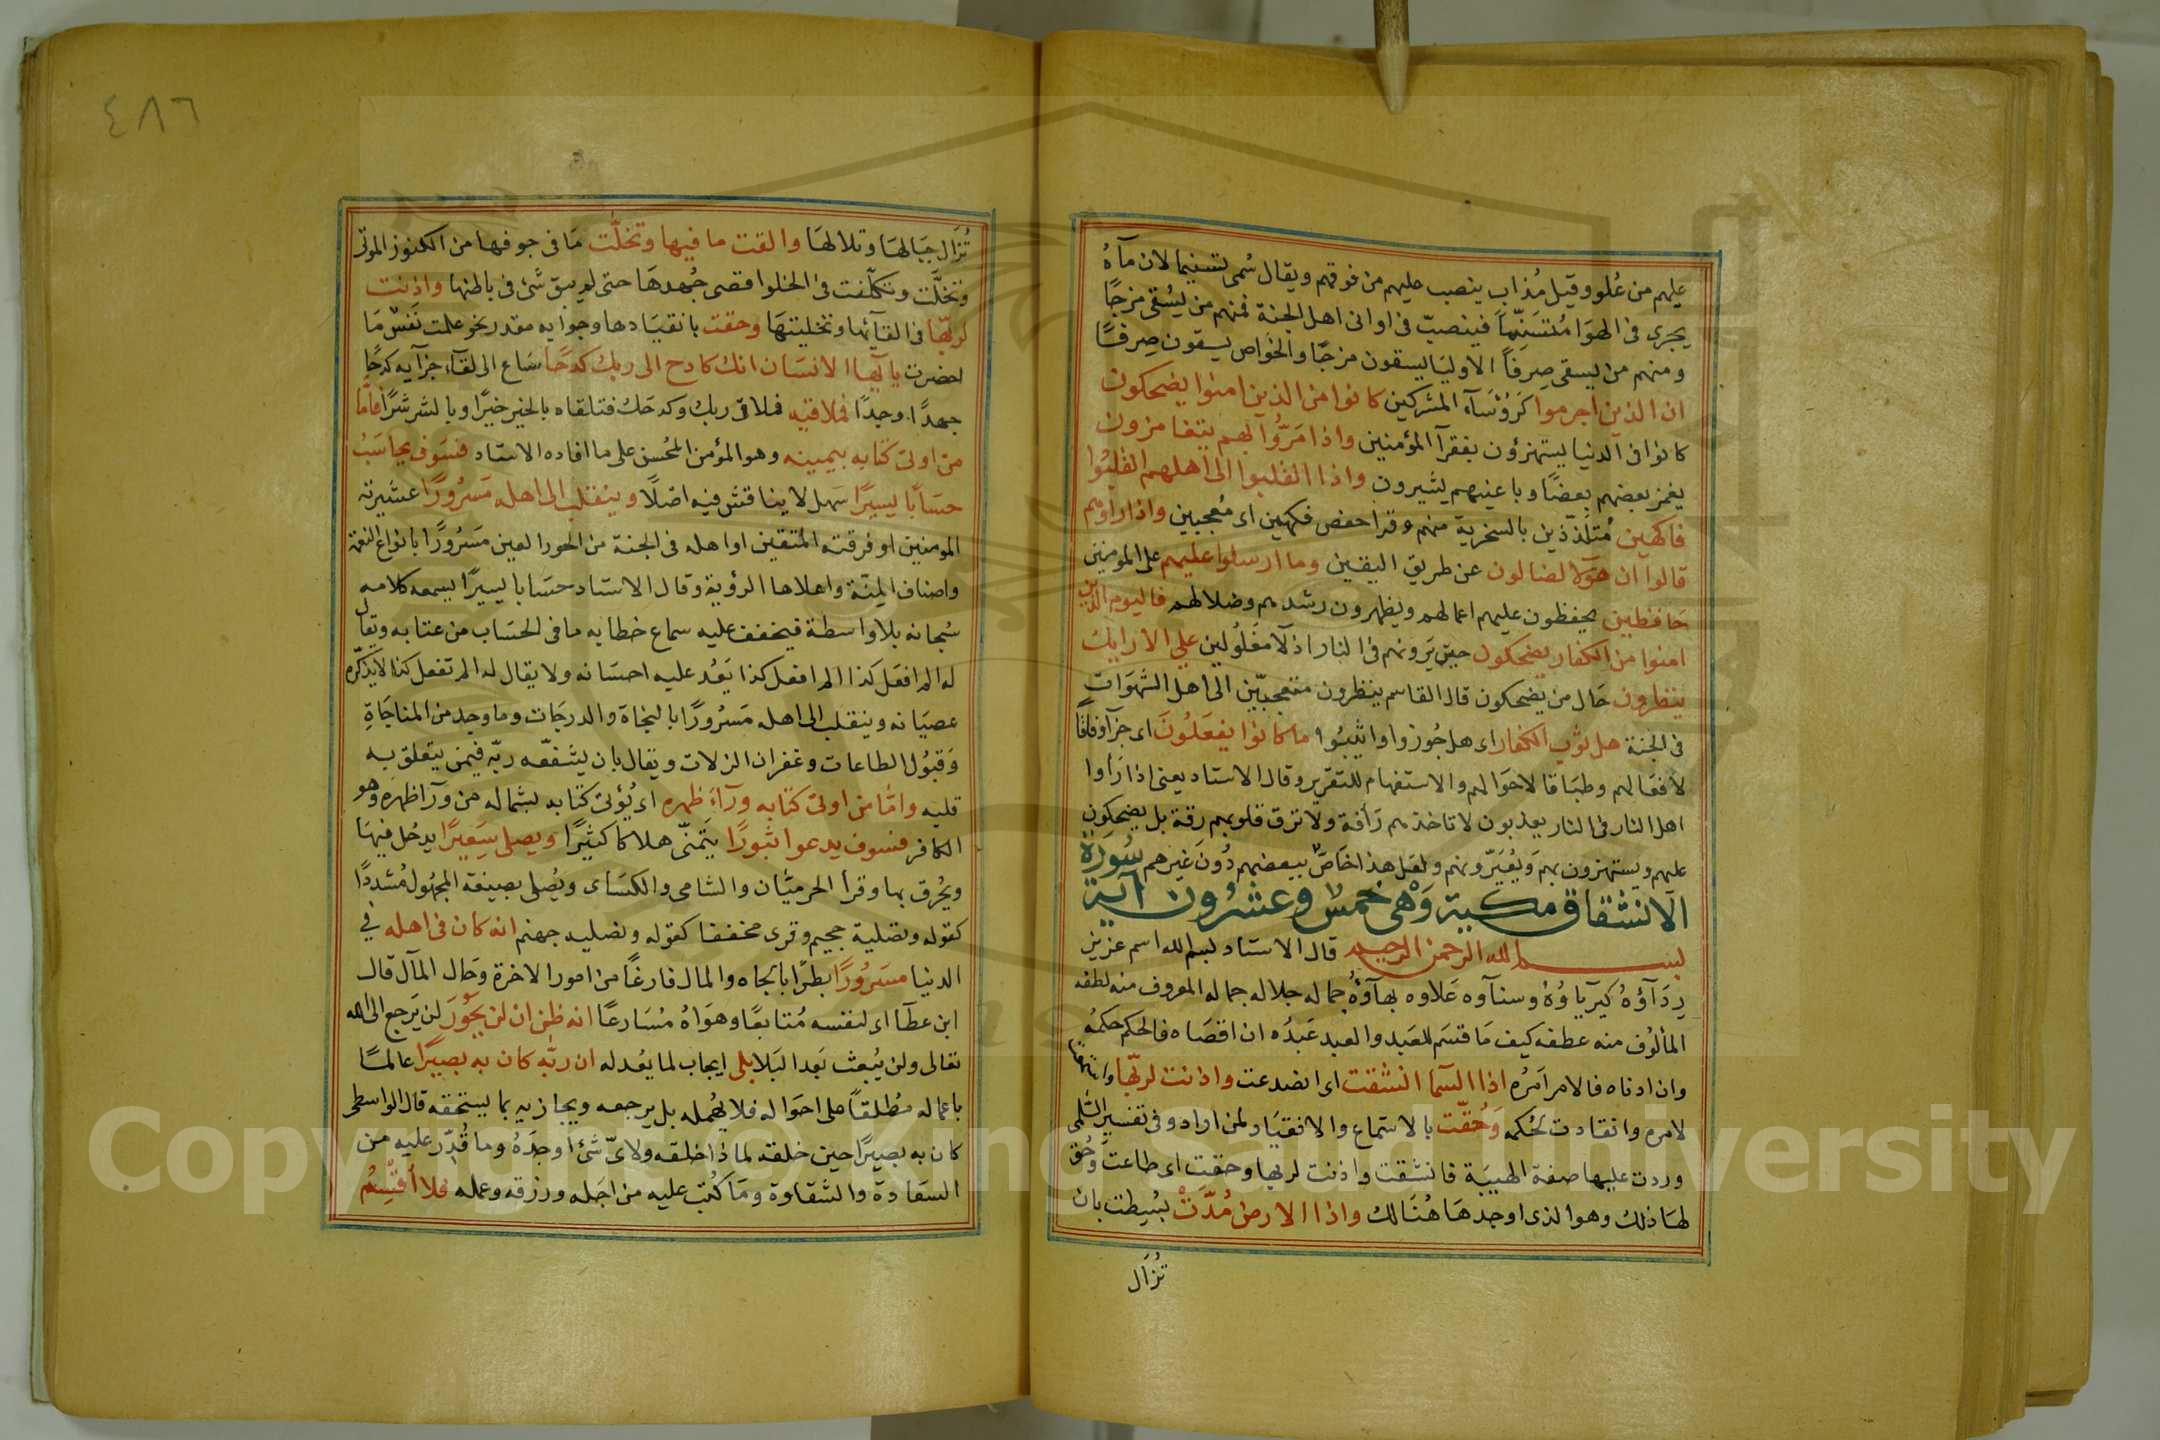 عليهم من عُلو وقيل مُذاب ينصب عليهم من فوقهم ويقال سُمى تسنيما لان مآءهُ
يجرى فى الهوَا مُتسَنِّهاً فينصبّ فى اوانى اهل الجنة فمنهم من يُسْقى مزجًا
ومنهم من يسقى صِرفاً الاوليا يسقون مزجًا والخواص يسقون صِرفًا
ان الذين اجرموا كَرُؤسَآء المشركين كانوا من الذين امنوا يضحكون
كانوا فى الدنيا يستهزؤن بفقرآ المؤمنين واذا مَرُّوا بهم يتغامزون
يغمز بعضهم بعضًا وباعينهم يشيرون واذا انقلبوا الى اهلهم انقلبُوا
فاكهين مُتلَذّذين بالسخرية منهم وقرا حفص فكهين اى مُعجبين واذا رَاوهم
قالوا ان هؤلآ لضالون عن طريق اليقين وما ارسلوا عليهم على المومنين
حَافظين يحفظون عليهم اعمالهم ويظهرون رشدهم وضلالهم فاليوم الذين
امنوا من الكفار يضحكون حين يَرَونهم فى النار اذلآ مغلُولين على الارايك
ينظرون حَال من يضحكون قال القاسم ينظرون متعجبّين الى اهل الشهَوَات
فى الجنة هل ثوب الكفار اى هل جُوزوا واثيبُوا ما كانوا يفعَلُونَ اى جزآ وفاقًا
لافعَالهم وطبَاقا لاحوَالهم والاستفهام للتقرير وقال الاستاد يعنى اذا رَاوا
اهل النار فى النار يعذبون لا تاخذهم رَأفة ولا ترق قلوبهم رقة بل يضحكون
عليهم ويستهزون بهم وَيُعَيّرونهم ولعَل هذا خَاصّ ببعضهم دُونَ غيرهم سُورَة
الانشقاق مكية وَهْى خمسٌ وعشرُون آية
بسم الله الرحمن الرحيم قال الاستاد بسم الله اسم عزيز
رِدَآؤهُ كبريَاوُهْ وسنآوه عَلاوه بهآؤهُ جماله جلاله جماله المعروف منه لطفه
المألوُف منه عطفه كيف مَا قسَم للعَبد والعبد عَبدُه ان اقصَاه فالحكم حكمُه
وان ادناه فالامر امرُه اذا السّما انشقت اى انصدعت واذنت لربّها واستمعت
لامره وانقادت لحُكمه وَحُقّت بالاستماع والانقيَاد لمن اراد وفى تفسير السُّلمى
وردت عليها صفة الهيبَة فانشقت واذنت لربها وحقت اى طاعت وَحُقّ
لهَا ذلك وهو الذى اوجدهَا هُنَالك واذا الارض مُدَّتْ بُسِطت بان
تُزَال
٤٨٦
تُزَال جبَالهَا وتلالهَا والقت ما فيها وتخلّت مَا فى جوفها من الكنوز الموتى
وتخلَّت وتكلّفت فى الخلو اقصى جُهدهَا حتى لم يبق شئ فى باطنها واذنت
لربّها فى القآئها وتخليتهَا وحقت بانقيَادها وجوابه مقدر نحو علمت نَفسٌ مَا
احضرت يا آيّها الانسَان انك كادح الى ربك كدحًا سَاعٍ الى لقآء جزآيه كدحًا
جهدًا وجدًا فملاقيه فملاقى ربك وكدحَك فتلقاه بالخير خيرًا وبالشر شرًا فامّا
من اوتى كتابه بيمينه وهو المؤمن المحُسن على ما افاده الاستاد فسَوف يحاسَبُ
حسَاباً يسيرًا سَهل لا يناقش فيه اصْلًا وينقلب الى اهله مَسرُورًا عشيرته
المومنين او فرقته المتقين او اهله فى الجنة من الحور العين مَسْرُورًا بانواع النعمة
واصناف المِنّة واهلاها الرؤية وقال الاستاد حسَابا يسيرًا يسمعه كلامه
سُبحانه بلا واسطة فيخفف عليه سماع خطابه ما فى الحسَاب من عتابه ويقال
له الم افعَل كذا الم افعل كذا يَعُد عليه احسَانه ولا يقال له الم تفعل كذا لا يذكّره
عصيَانه وينقلب الى اهله مَسرُورًا بالنجاة والدرجَات وما وجد من المناجَاةِ
وَقبُول الطاعات وغفران الزلات ويقال بان يشفّعه ربّه فيمن يتعلق به
قلبه وامّا من اوتى كتابه ورآءَ ظهره اى يُؤتى كتابه بشماله من ورآ ظهره وهو
الكافر فسوف يدعوا ثبورًا يَتمنّى هلاكا كثيرًا ويصلى سَعيرًا يدخُل فيهَا
ويحُرق بها وقرأ الحرميّان والشامى والكسَاى ويُصلى بصيغة المجهُول مُشددًا
كقوله وتصلية جحيم وقرى مخففا كقوله ونصليه جهنم انه كان فى اهله فى
الدنيا مسَرُورًا بطرًا بالجاه والمال فارغاً من امور الاخرة وحَال المآل قال
ابن عطآ اى لنفسه مُتابعًا وهوَاهُ مُسَارعًا انه ظن ان لن يحَوُرَ لن يَرجع الى الله
تعالى ولن يُبعث بَعد البَلا بلى ايجاب لما يعُد له ان ربّه كان به بصيرًا عالمًا
باعماله مُطلقاً على احوَاله فلا يهُمله بل يرجعه ويجازيه بما يستحقه قال الواسطى
كان به بصيرًا حين خلقه لماذا خلقه ولاىّ شئ اوجدَهُ وما قُدّر عليه من
السعَادة والشقاوة ومَا كُتب عليه من اجَله ورزقه وعمله فلا أُقسِمُ
Copyright © King Saud University